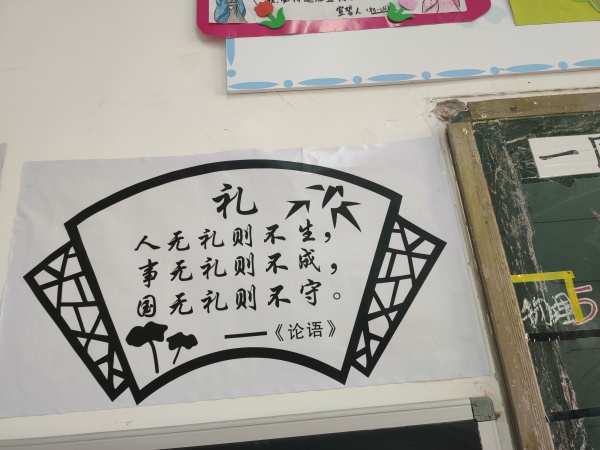 宣誓人
礼
人无礼则不生,
事无礼则不成,
国无礼则不守。
——《论语》
一
物理5